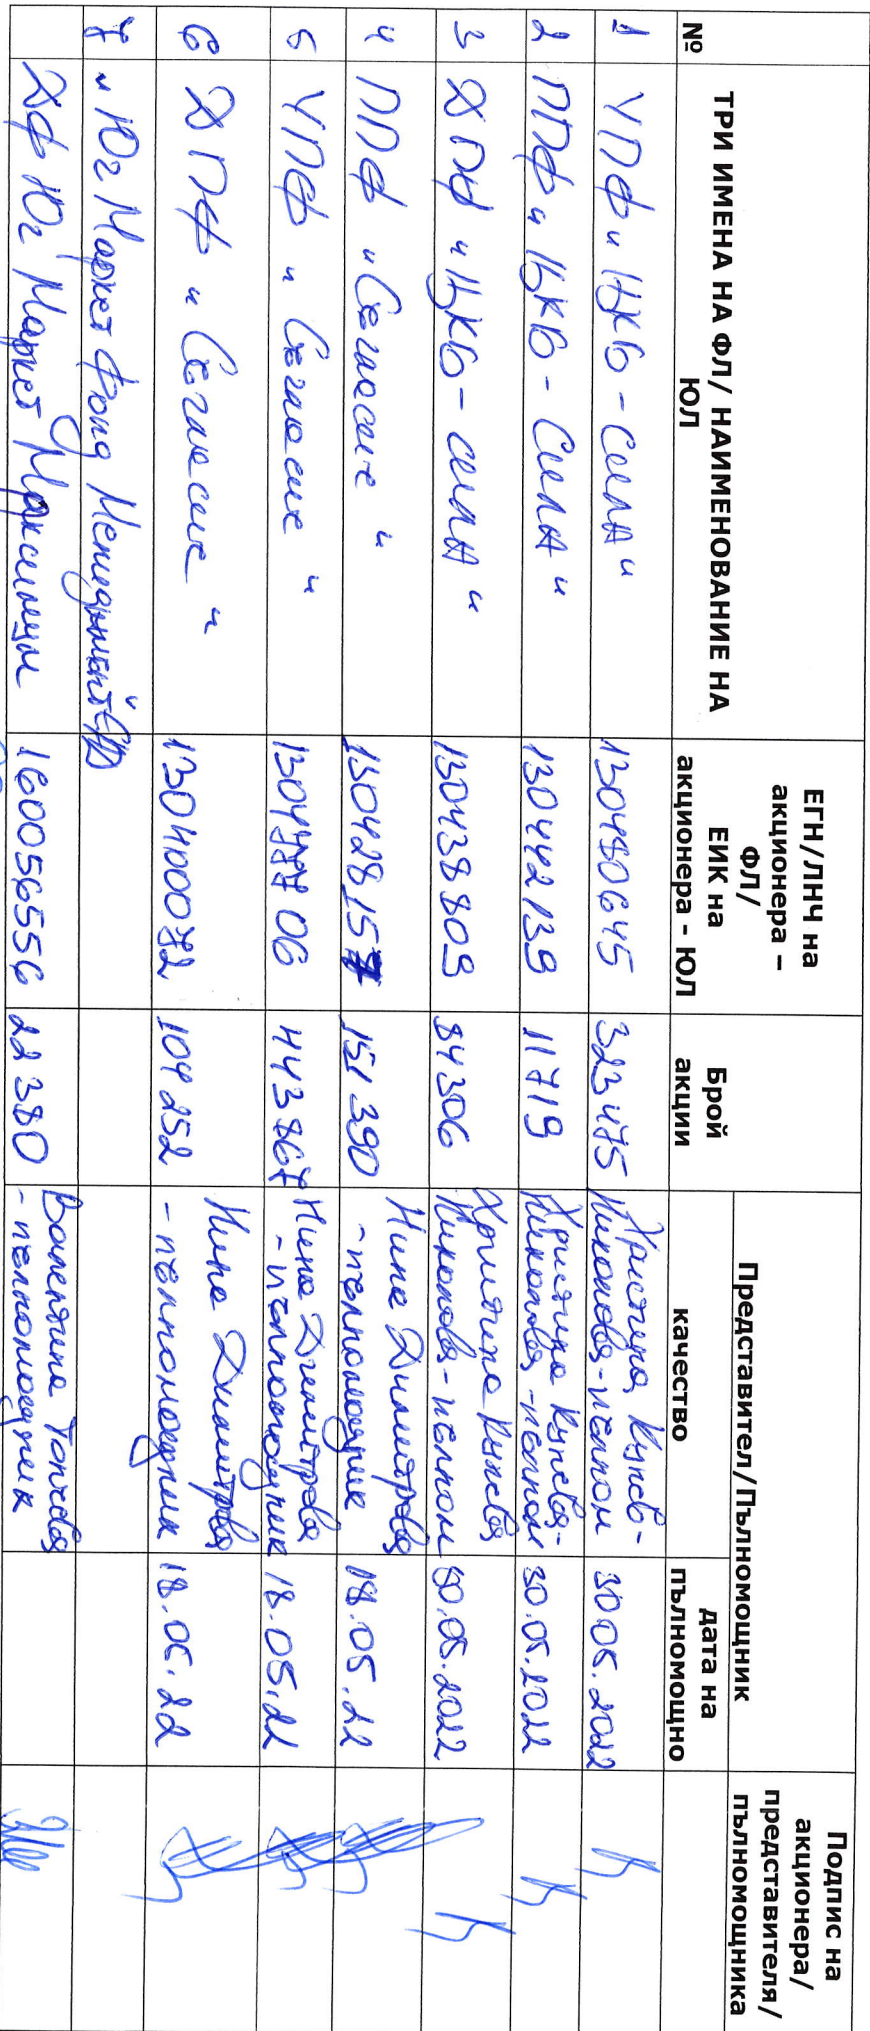 №
ТРИ ИМЕНА НА ФЛ/ НАИМЕНОВАНИЕ НА
ЮЛ
ЕГН/ЛНЧ на
акционера –
ФЛ/
ЕИК на
акционера - ЮЛ
Брой
акции
Представител/Пълномощник
качество
дата на
пълномощно
Подпис на
акционера/
представителя/
пълномощника
1 УПФ "ЦКБ - Сила" 130480645 323475 Христина Кунева-
Николова - пълном 30.05.2022
2 ППФ "ЦКБ - Сила" 130442139 11719 Христина Кунева-
Николова - пълном 30.05.2022
3 ДПФ "ЦКБ - Сила" 130438809 84306 Христина Кунева
Николова - пълном 30.05.2022
4 ППФ "Съгласие" 130428157 151390 Нина Димитрова
- пълномощник 18.05.22
5 УПФ "Съгласие" 130477706 443867 Нина Димитрова
- пълномощник 18.05.22
6 ДПФ "Съгласие" 130400072 104252 Нина Димитрова
- пълномощник 18.05.22
7 "Юг Маркет Фонд Мениджмънт"
ДФ Юг Маркет Максимум 160056556 22380 Валентина Топчева
- пълномощник